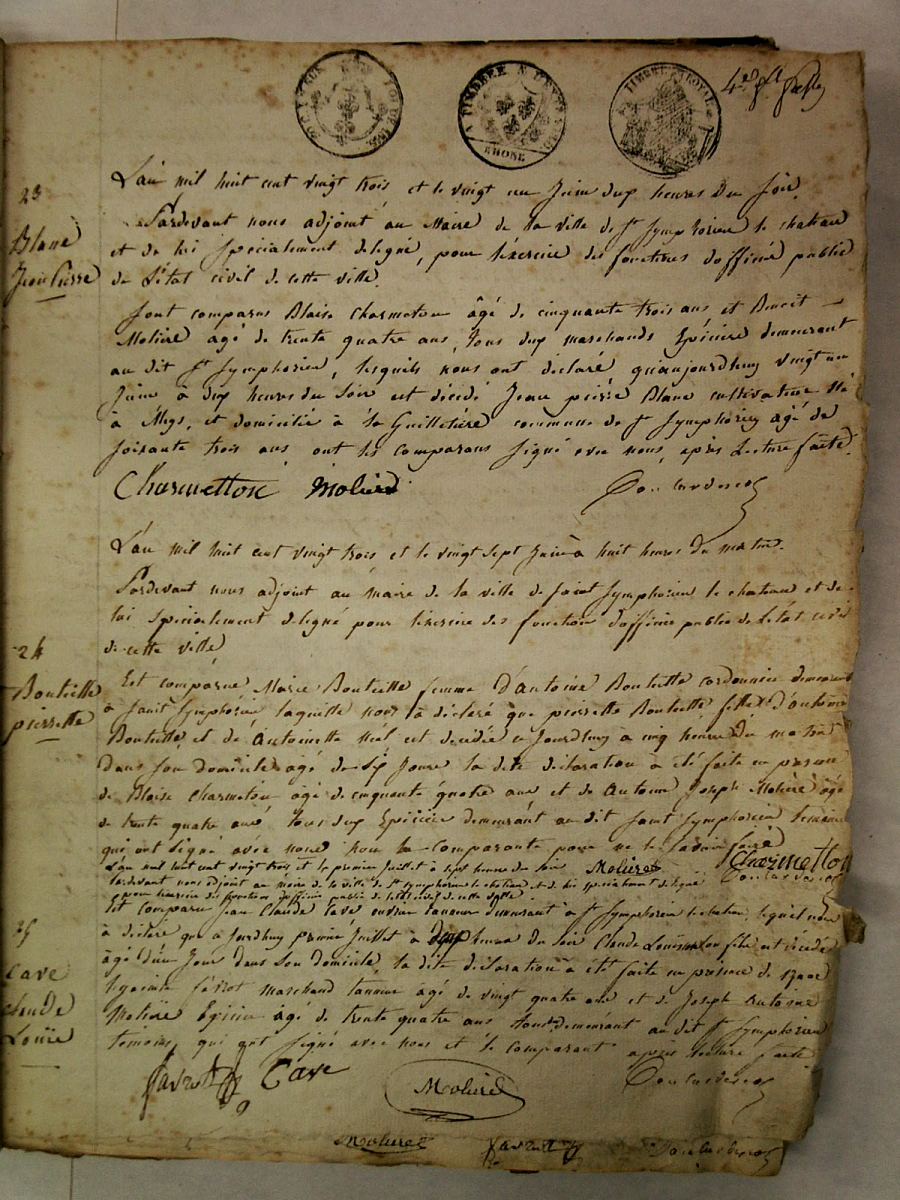 A TIMBRER
RHONE
TIMBRE ROYAL
4e ft
23
Blanc
Jean Pierre
L'an mil huit cent vingt trois et le vingt un Juin dup heures Du Soir
Pardevant nous adjoint au Maire de la ville de St Symphorien le chateau
et de lui specialement delegué, pour l'exercice des fonctions d'officié public
de L'état civil de cette ville.
Sont comparus Blaise Charmeton âgé de cinquante trois ans et Benoit
Molière agé de trente quatre ans, tous dup marchands Epiciers demeurant
au dit St Symphorien, lesquels nous ont déclaré quaujourdhuy vingt un
Juin à dip heures du Soir est décédé Jean pierre Blanc cultivateur Né
à Meys, et domicilié à la Guilletière commune de St Symphorien agé de
soixante trois ans ont les comparans signé avec nous, après Lecture faite.
Charmetton Molière
L'an mil huit cent vingt trois et le vingt sept Juin à huit heures du matin.
Pardevant nous adjoint au maire de la ville de saint Symphorien le chateau et de
lui spécialement delegué pour l'exercice des fonction d'officié public de L'état civil
de cette ville
24
Bouteille
pierrette
Est comparue Marie Bouteille femme d'Antoine Bouteille cordonnier demeurant
à saint Symphorien laquelle nous à déclaré que pierrette Bouteille fille d'antoine
Bouteille et de Antoinette est decidée aujourdhuy à cinq heures Du matin
dans son domicile agé de Sip Jours la dite déclaration à été faite en présence
de Blaise Charmeton âgé de cinquante quatre ans et de Antoine Joseph Molière agé
de trente quatre ans tous dup Epiciers demeurant au dit saint Symphorien temoins
qui ont signé avec nous non la comparante pour ne le savoir faire
L'an mil huit cent vingt trois et le premier Juillet à sept heures du soir
Molière Charmetton
Pardevant nous adjoint au maire de la ville de St Symphorien le chateau et de lui specialement delegué
pour l'exercice des fonctions d'officié public de l'état civil de cette ville.
25
Cave
claude
Louis
Est comparu Jean Claude Cave ouvrier tanneur demeurant à St Symphorien le chateau, lequel nous
à déclaré que aujourdhuy premier Juillet à heures du soir Claude Louis son fils est décédé
âgé d'un Jour dans son domicile, la dite déclaration à été faite en présence de
hyacinte marchand tanneur âgé de vingt quatre ans et de Joseph Antoine
Molière Epicier âgé de trente quatre ans tous demeurant au dit St Symphorien
temoins, qui ont signé avec nous et le comparant après lecture faite
Cave
Molière
Molière